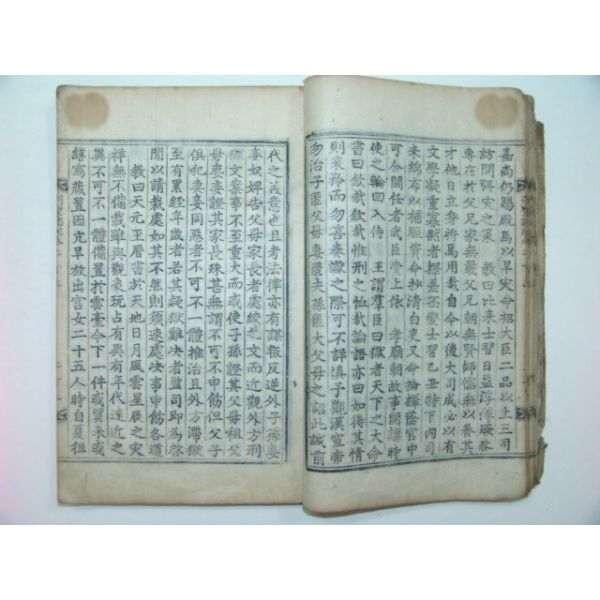 嘉尚仍賜廐馬以旱災命招大臣二品以上三司
訪問弭災之策　教曰比來士習日益浮薄風俗
專在於父兄家無嚴父兄朝無賢師儒無以養其
才他日立身將焉用哉自今以後大司成必以有
文學凝重震猷者擇差丕變士習乙丑特下內司
米綿布以補賑費命抄清白吏又命論擇蔭官中
可合閫任者武臣堂上依　孝廟朝故事開講時
使之輪回入侍　王謂羣臣曰獄者天下之大命
書曰欽哉欽哉惟刑之恤哉論語亦曰如得其情
則哀矜而勿喜奏讞之際可不詳愼予觀漢宣帝
勿治子匿父母妻匿夫孫匿大父母之詔此誠前
代之美意也且考法律亦有謀叛反逆外子孫妻
妾奴婢告父母家長者處絞之文而近觀外方刑
獄文案事不至重大而或使子孫證其父母祖父
母妻妾證其家長殊甚無謂不可不申飭但父子
俱犯妻妾同惡者不可不一體推治且外方滯獄
至有累經年歲者若其疑獄難決者監司即爲啓
聞以請裁處如其不然則須速處決事申飭各道
　教曰天元玉曆昔於天地日月風雲星辰之灾
祥無不備載雖與觀象玩占有異有年代遠近之
異不可不一體備置於雲臺令下一件或貿來或
繕寫藏置因亢旱放出宮女二十五人時自夏徂